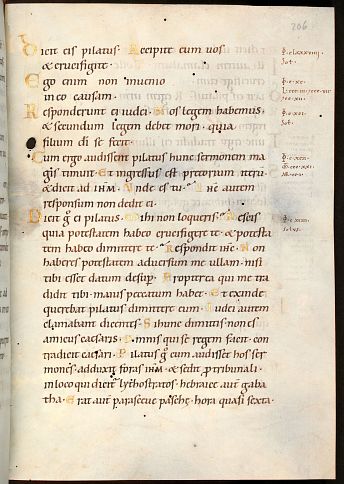 206
Dicit eis pilatus. Accipite eum uos
& crucifigite.
Ego enim non inuenio
in eo causam.
Responderunt ei iudei. Nos legem habemus
& secundum legem debet mori. quia
filium di se fecit.
Cum ergo audisset pilatus hunc sermonem ma
gis timuit. Et ingressus est pretorium iteru
& dicit ad ihm. Unde es tu. ihc autem
responsum non dedit ei.
Dicit g ei pilatus. Mihi non loqueris. Nescis
quia potestatem habeo crucifigere te. & potesta
tem habeo dimittere te. Respondit ihc. Non
haberes potestatem aduersum me ullam. nisi
tibi esset datum desup. Propterea qui me tra
didit tibi. maius peccatum habet. Et exinde
querebat pilatus dimittere eum. Iudei autem
clamabant dicentes. Si hunc dimittis non es
amicus caesaris. Omnis qui se regem facit. con
tradicit caesari. Pilatus g cum audisset hos ser
mones. adduxit foras ihm. & sedit p tribunali.
in loco qui dicit lychostratos. hebraice aut gaba
tha. Erat aut parasceue pasche. hora quasi sexta.